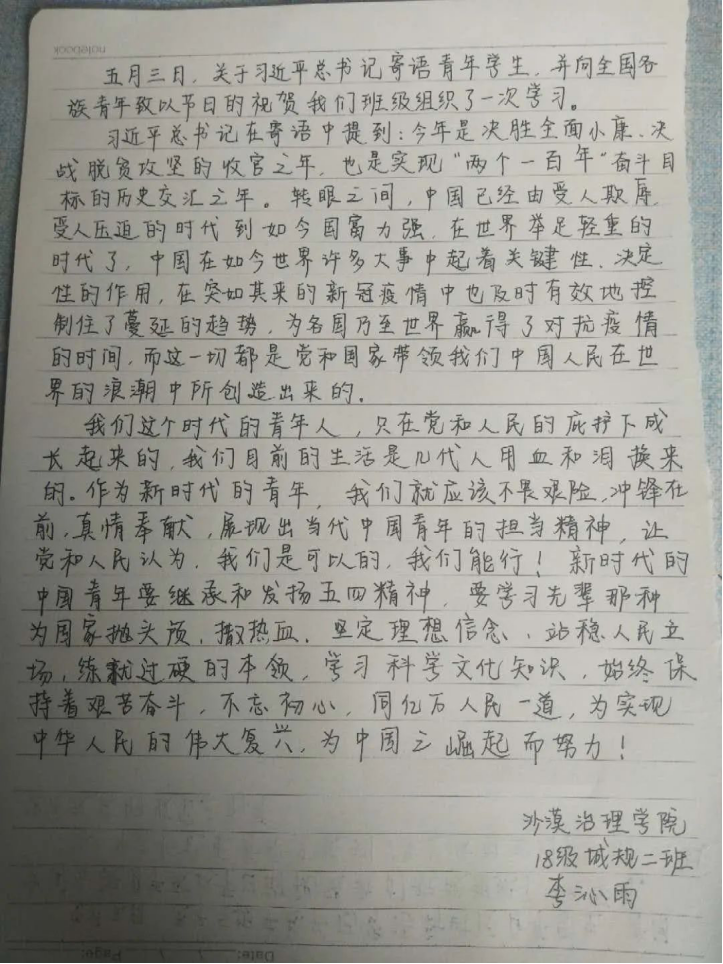 notebook
五月三日，关于习近平总书记寄语青年学生，并向全国各
族青年致以节日的祝贺我们班级组织了一次学习。
习近平总书记在寄语中提到：今年是决胜全面小康、决
战脱贫攻坚的收官之年，也是实现“两个一百年”奋斗目
标的历史交汇之年。转眼之间，中国已经由受人欺辱，
受人压迫的时代到如今国富力强，在世界举足轻重的
时代了，中国在如今世界许多大事中起着关键性、决定
性的作用，在突如其来的新冠疫情中也及时有效地控
制住了蔓延的趋势，为各国乃至世界赢得了对抗疫情
的时间，而这一切都是党和国家带领我们中国人民在世
界的浪潮中所创造出来的。
我们这个时代的青年人，只在党和人民的庇护下成
长起来的，我们目前的生活是几代人用血和泪换来
的。作为新时代的青年，我们就应该不畏艰险，冲锋在
前，真情奉献，展现出当代中国青年的担当精神，让
党和人民认为，我们是可以的，我们能行！新时代的
中国青年要继承和发扬五四精神，要学习先辈那种
为国家抛头颅，撒热血，坚定理想信念，站稳人民立
场，练就过硬的本领，学习科学文化知识，始终保
持着艰苦奋斗，不忘初心，同亿万人民一道，为实现
中华人民的伟大复兴，为中国之崛起而努力！
沙漠治理学院
18级城规二班
李沁雨
Date: / / Page: